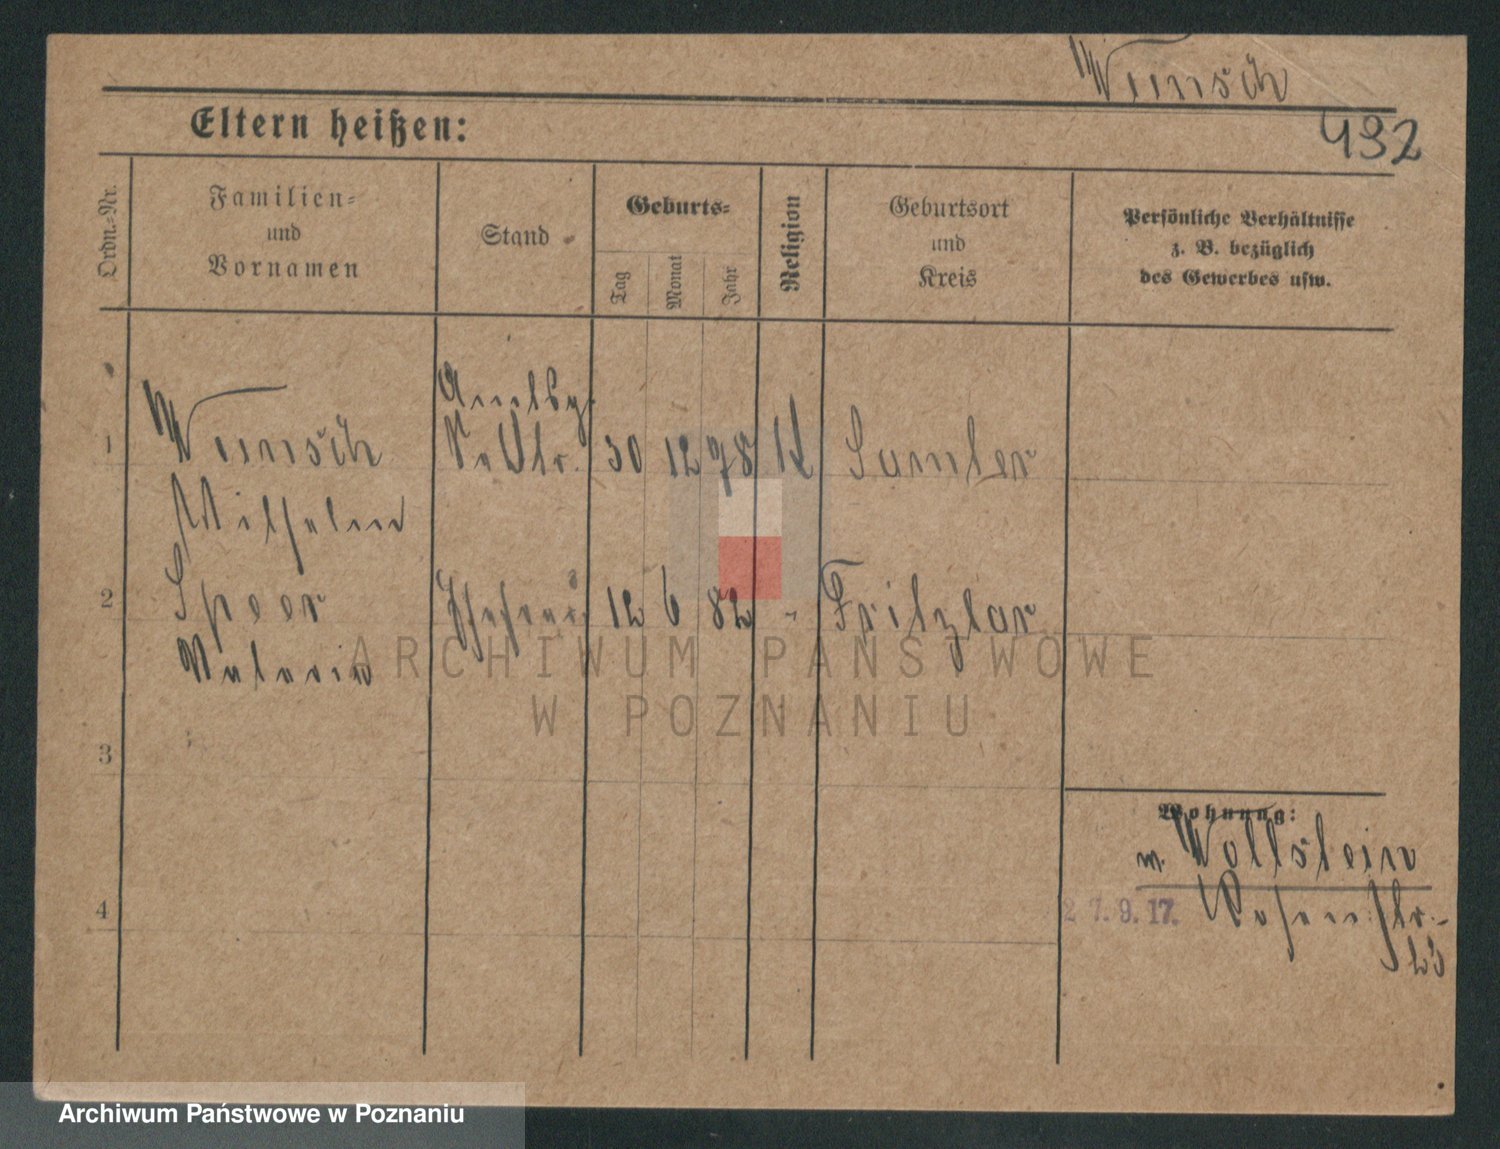 Wunsch
492
Eltern heißen:
Ordn.=Nr.
Familien=
und
Vornamen
Stand
Geburts=
Tag
Monat
Jahr
Religion
Geburtsort
und
Kreis
Persönliche Verhältnisse
z. B. bezüglich
des Gewerbes usw.
1
Wunsch
30 12 78 K Samter
Wilhelm
2
Speer
Ehefrau 12 6 82 - Fritzlar
Valeria
3
4
Wohnung:
n. Wollstein
27.9.17.
Posenstr.
ARCHIWUM PAŃSTWOWE
W POZNANIU
Archiwum Państwowe w Poznaniu